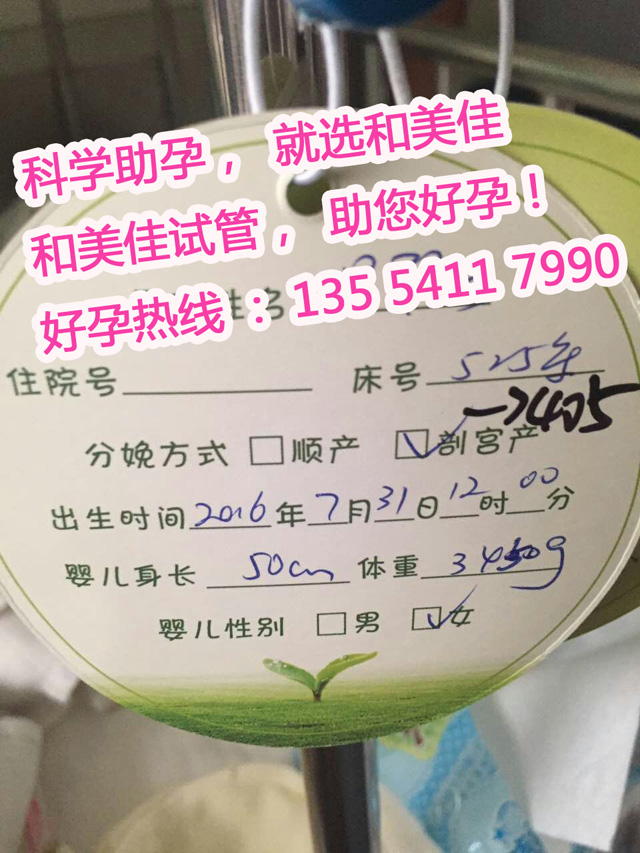 科学助孕， 就选和美佳
和美佳试管， 助您好孕！
好孕热线 ：135 5411 7990
姓名
住院号 床号 525
→405
分娩方式 □顺产 ☑剖宫产
出生时间2016年7月31日12时00分
婴儿身长 50cm 体重 3450g
婴儿性别 □男 ☑女